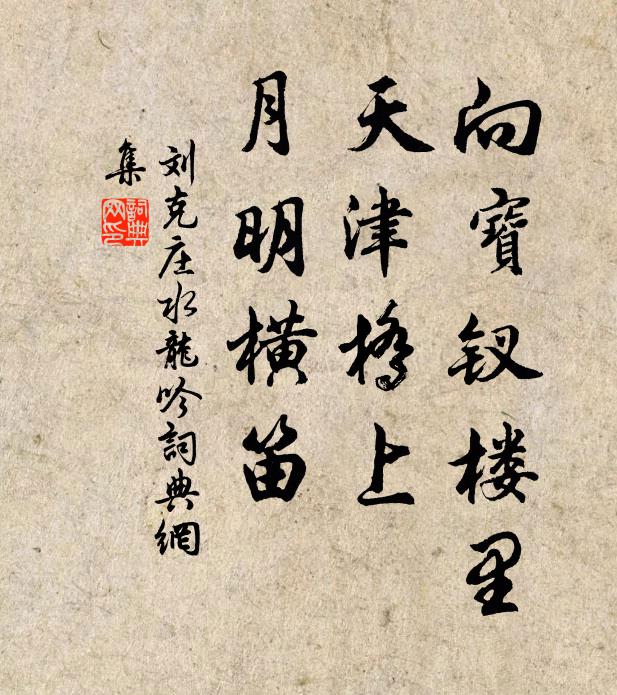 向寶钗楼里
天津橋上
月明橫笛
刘克庄水龍吟詞典網
集
詞典网印